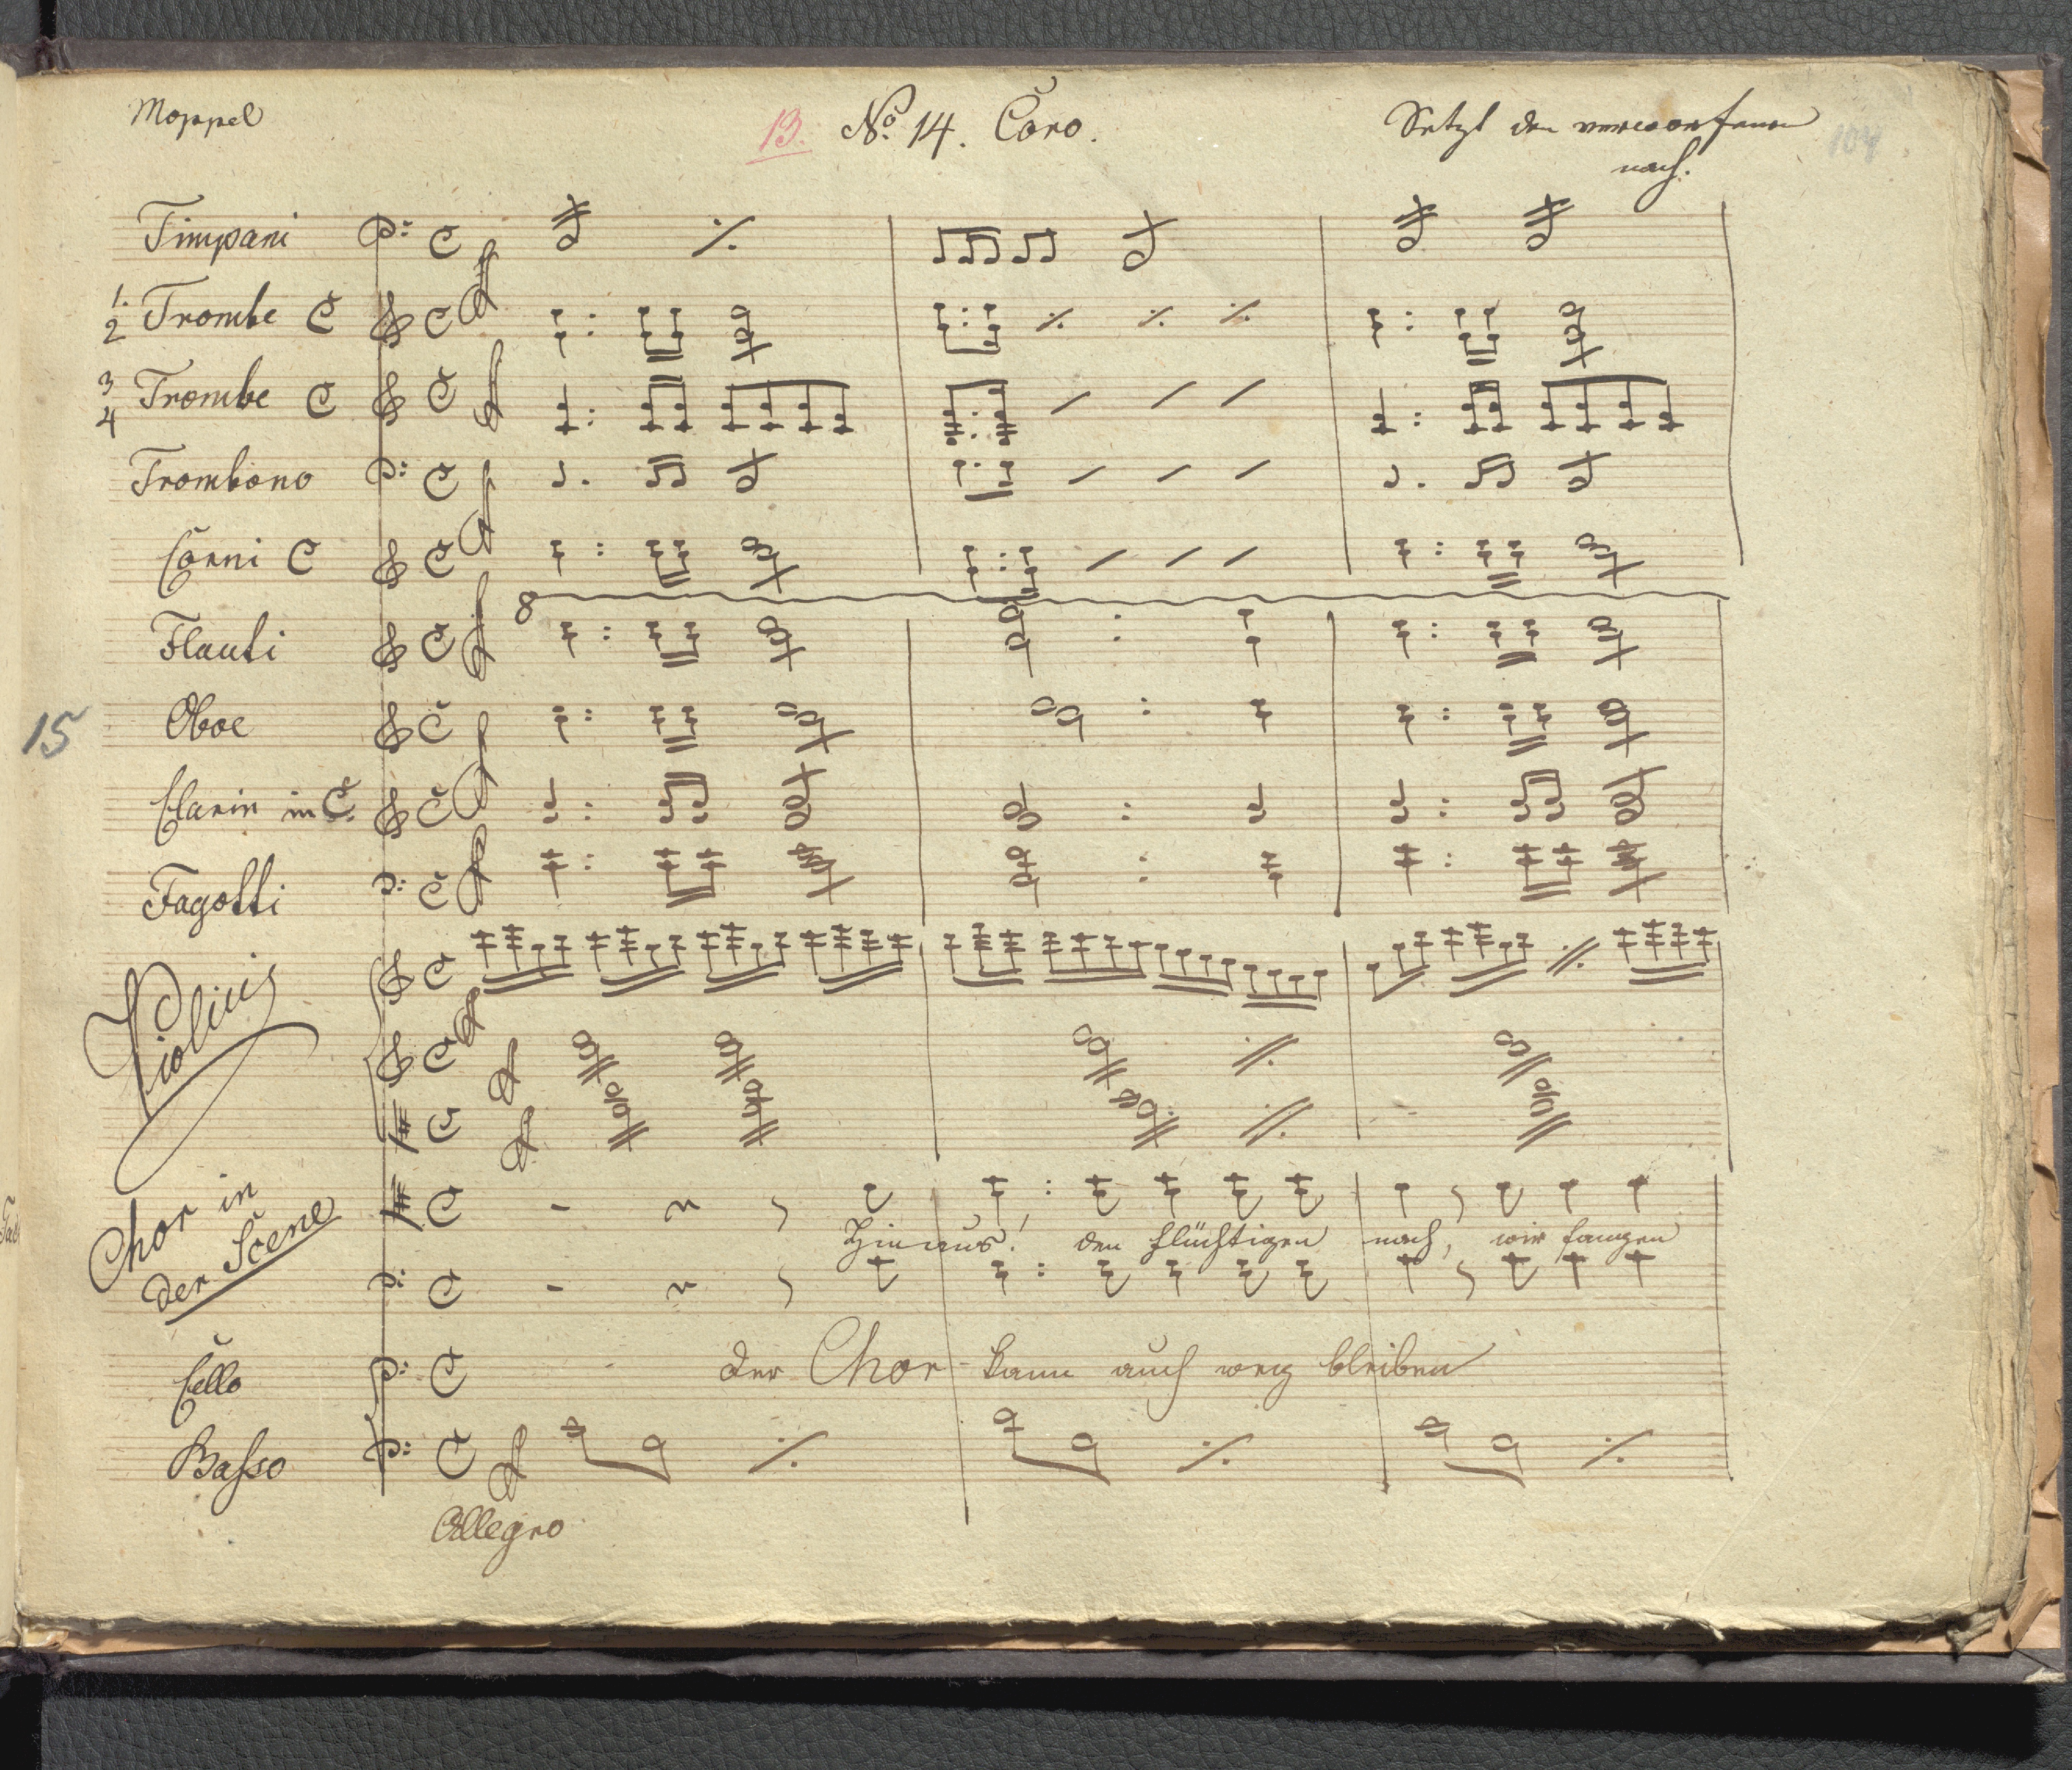 Moppel
13. No. 14. Coro.
Setzt den verworfenen
nach.
104
Timpani
1.
2 Trombe C
3
4 Trombe C
Trombono
Corni C
8
Flauti
15
Oboe
Clarin in C.
Fagotti
Violini
Chor in
der Scene
Hinaus! den flüchtigen nach, wir fangen
Cello
der Chor kann auch weg bleiben
Basso
Allegro